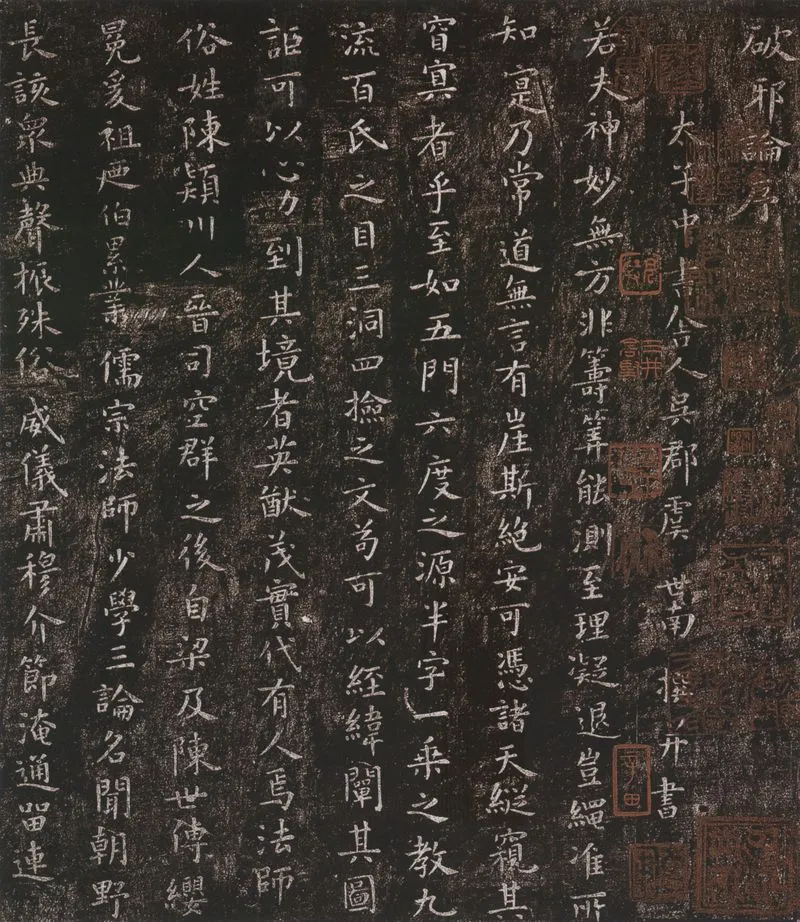 破邪論序
太子中書舍人吳郡虞世南撰并書
若夫神妙無方非籌筭能測至理凝退豈繩准所
知寔乃常道無言有崖斯絕安可憑諸天縱窺其
窅冥者乎至如五門六度之源半字一乘之教九
流百氏之目三洞四撿之文苟可以經緯闡其圖
詎可以心力到其境者英猷茂實代有人焉法師
俗姓陳潁川人晉司空群之後自梁及陳世傳纓
冕爰祖及伯累業儒宗法師少學三論名聞朝野
長該眾典聲振殊俗威儀肅穆介節淹通留連